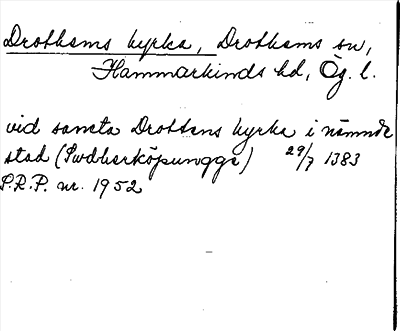 Drothems kyrka, Drothems sn,
Hammarkinds hd, Ög. l.
vid sancta Drottens kyrka i nämnde
stad (Swdherköpungge) 29/7 1383
S.R.P. nr. 1952